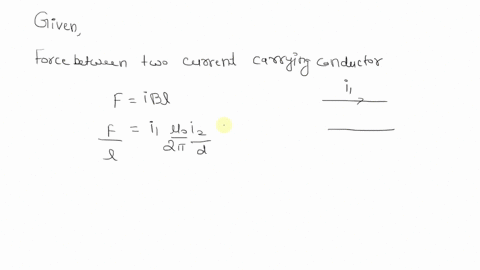 Given,
Force between two current carrying conductor
F = iBl
i₁
F/l = i₁ μ₀/2π i₂/d